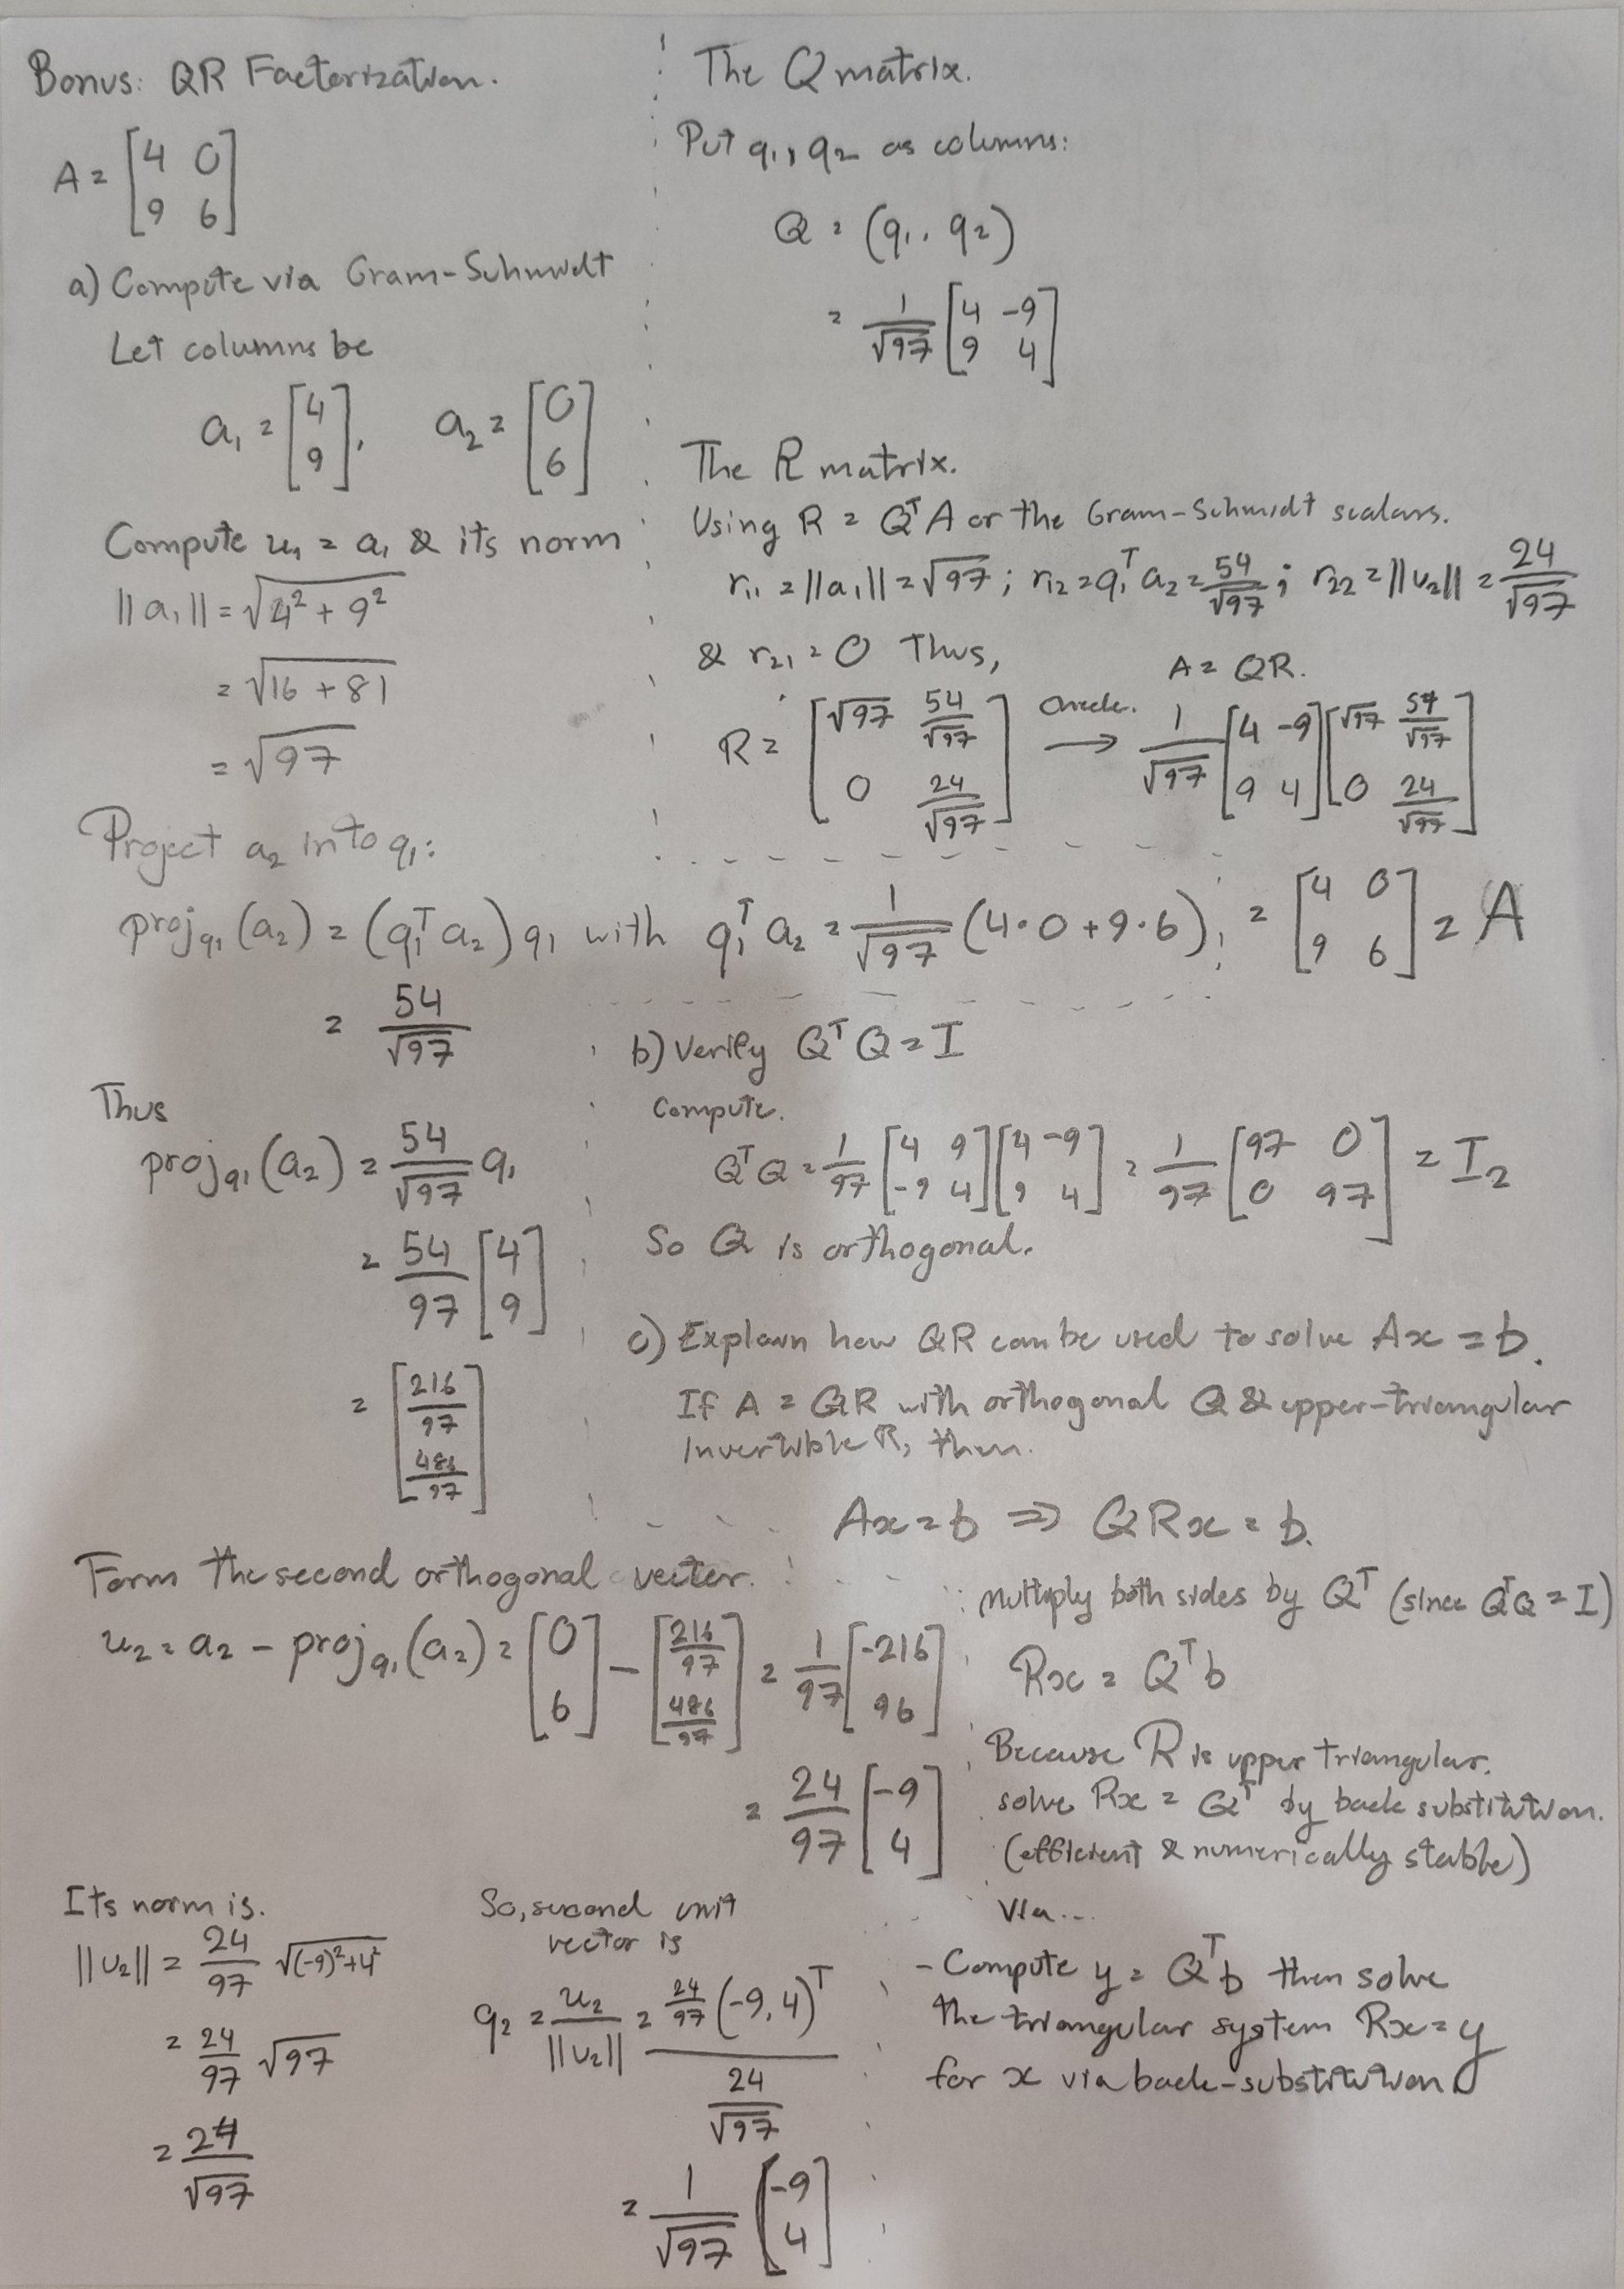 Bonus: QR Factorization.
A = [4 0; 9 6]
a) Compute via Gram-Schmidt
Let columns be
a₁ = [4; 9], a₂ = [0; 6]
Compute u₁ = a₁ & its norm
||a₁|| = √(4² + 9²)
= √(16 + 81)
= √97
Project a₂ into q₁:
proj_q₁(a₂) = (q₁ᵀ a₂) q₁ with q₁ᵀ a₂ = 1/√97 (4·0 + 9·6)
= 54/√97
Thus
proj_q₁(a₂) = 54/√97 q₁
= 54/97 [4; 9]
= [216/97; 486/97]
Form the second orthogonal vector.
u₂ = a₂ - proj_q₁(a₂) = [0; 6] - [216/97; 486/97] = 1/97 [-216; 96]
= 24/97 [-9; 4]
Its norm is.
||u₂|| = 24/97 √((-9)²+4²)
= 24/97 √97
= 24/√97
So, second unit
vector is
q₂ = u₂/||u₂|| = 24/97 (-9, 4)ᵀ / 24/√97
= 1/√97 [-9; 4]
The Q matrix.
Put q₁, q₂ as columns:
Q = (q₁, q₂)
= 1/√97 [4 -9; 9 4]
The R matrix.
Using R = QᵀA or the Gram-Schmidt scalars.
r₁₁ = ||a₁|| = √97; r₁₂ = q₁ᵀ a₂ = 54/√97; r₂₂ = ||u₂|| = 24/√97
& r₂₁ = 0 Thus,
R = [√97 54/√97; 0 24/√97] check. → A = QR. 1/√97 [4 -9; 9 4][√97 54/√97; 0 24/√97]
= [4 0; 9 6] = A
b) Verify QᵀQ = I
Compute.
QᵀQ = 1/97 [4 9; -9 4][4 -9; 9 4] = 1/97 [97 0; 0 97] = I₂
So Q is orthogonal.
c) Explain how QR can be used to solve Ax = b.
If A = QR with orthogonal Q & upper-triangular
invertible R, then.
Ax = b ⇒ QRx = b.
Multiply both sides by Qᵀ (since QᵀQ = I)
Rx = Qᵀb
Because R is upper triangular.
solve Rx = Qᵀ by back substitution.
(efficient & numerically stable)
Via...
- Compute y = Qᵀb then solve
the triangular system Rx = y
for x via back-substitution